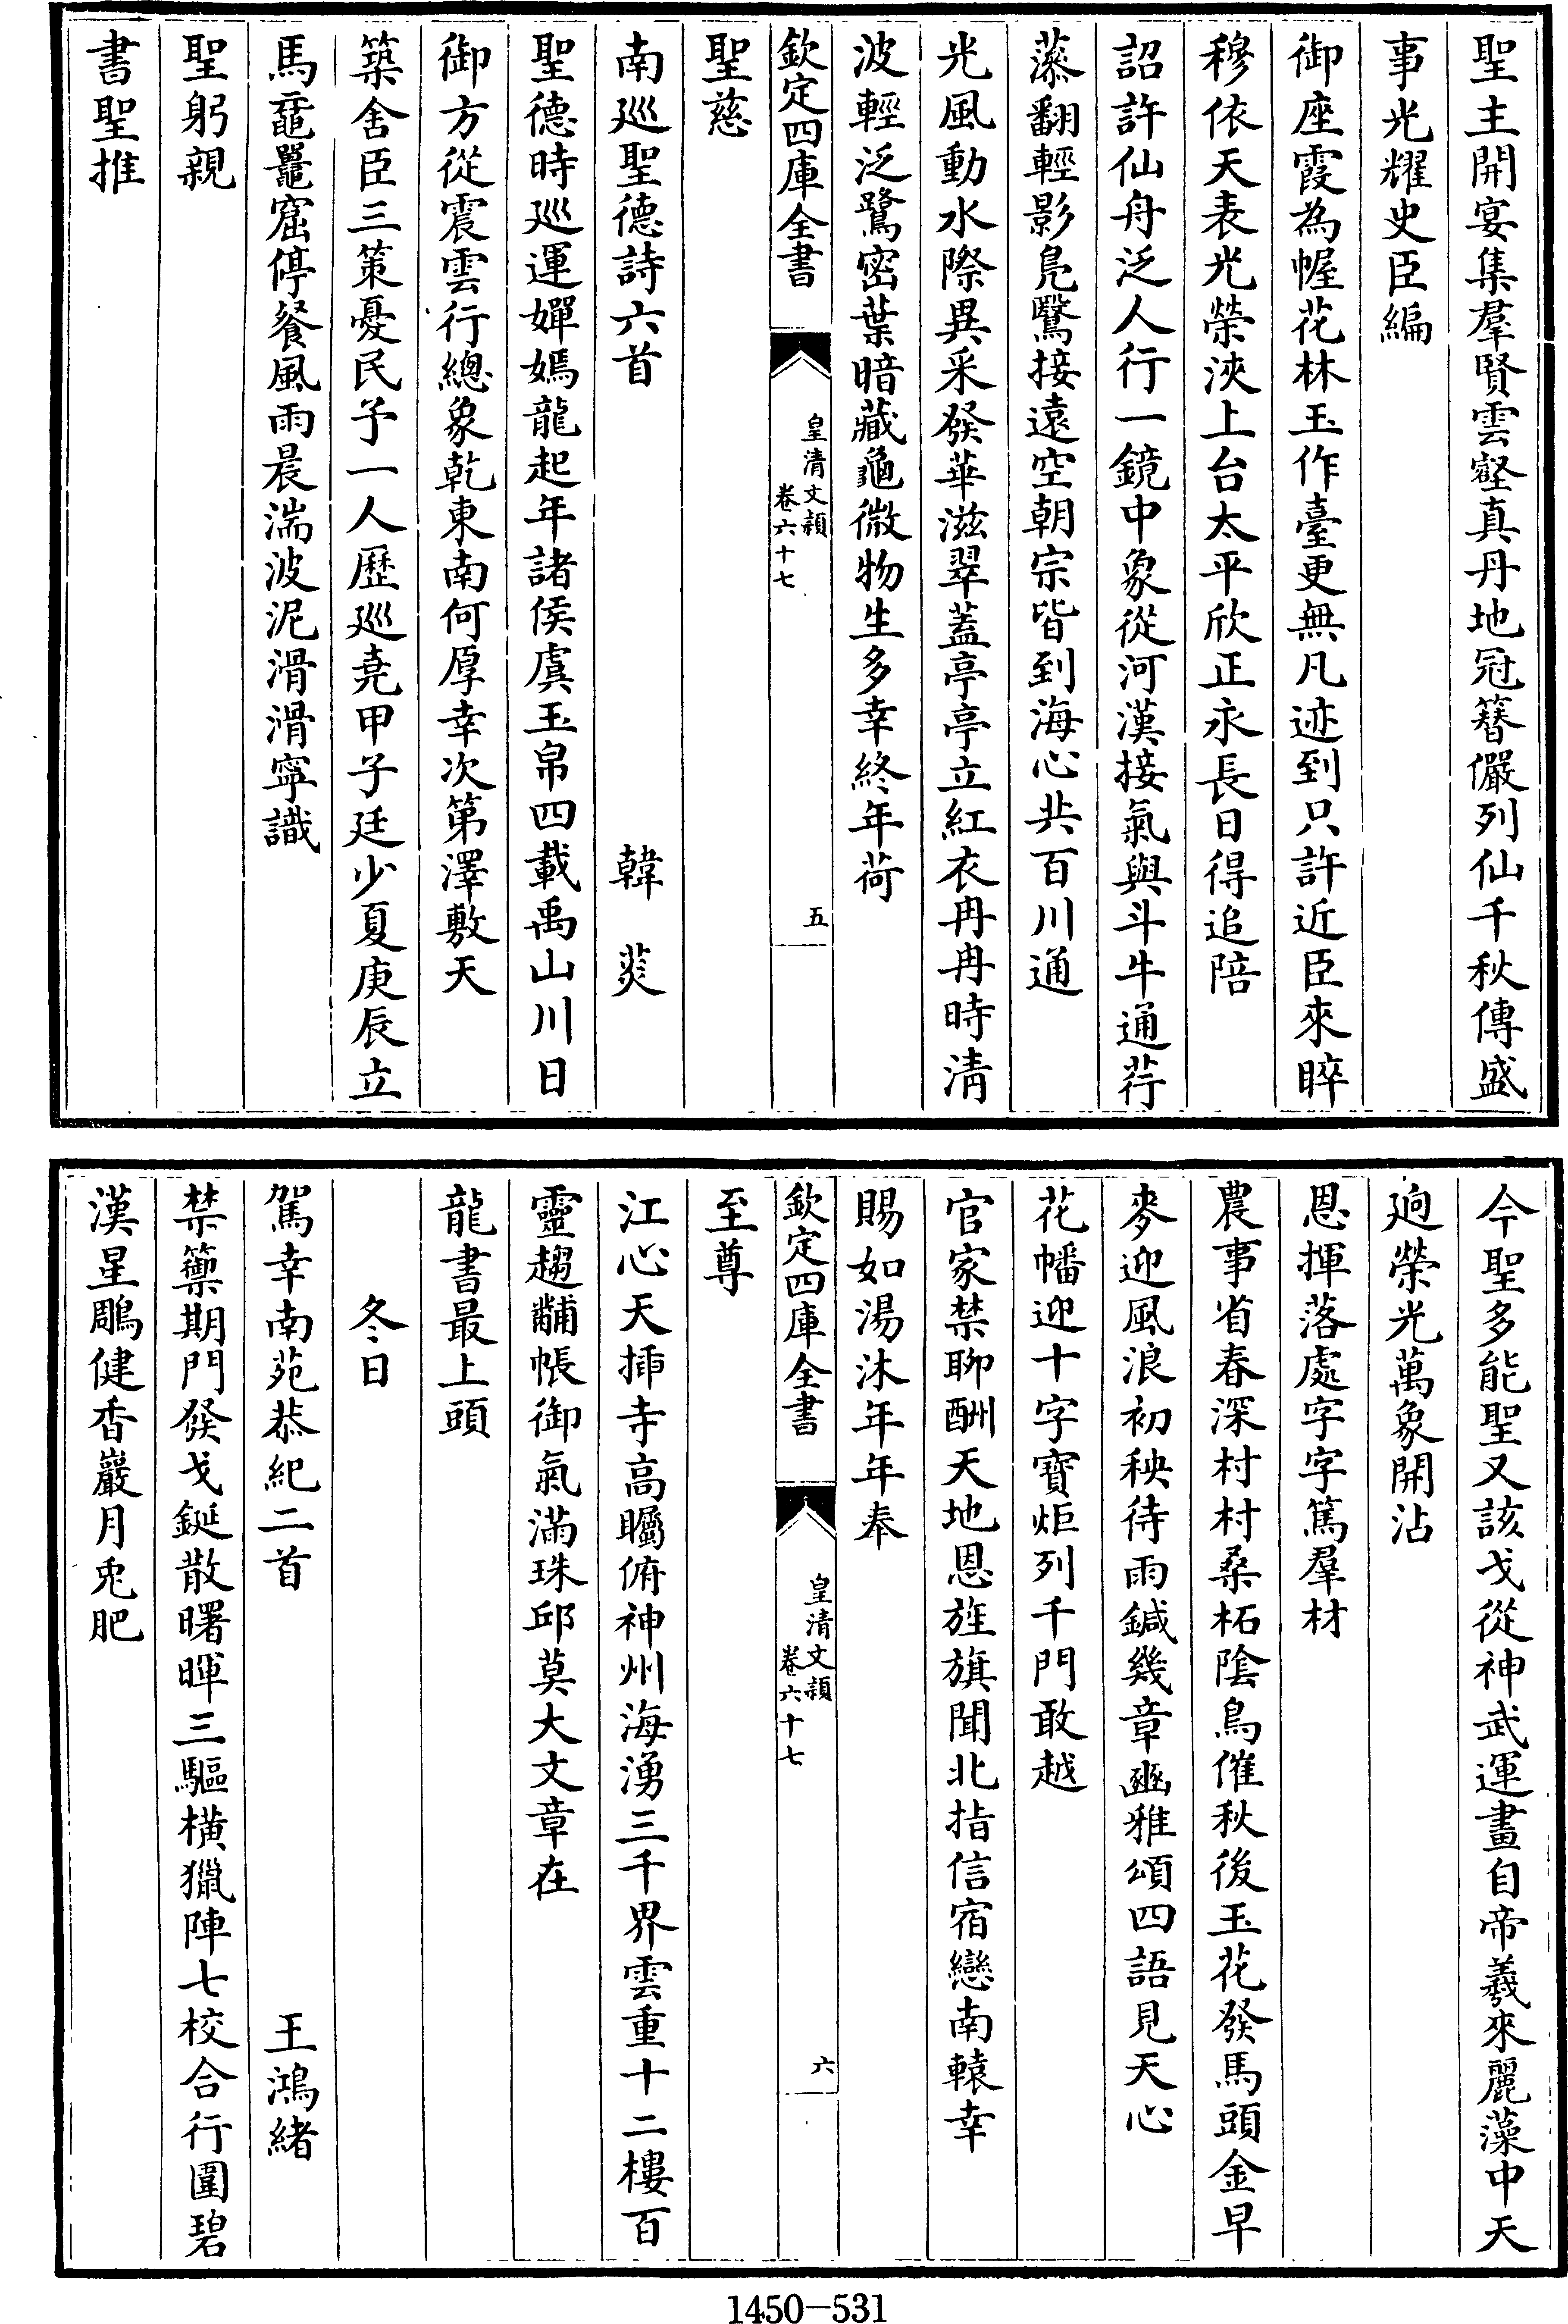 聖主開宴集羣賢雲壑真丹地冠簪儼列仙千秋傳盛
事光耀史臣編
御座霞為幄花林玉作臺更無凡迹到只許近臣來睟
穆依天表光榮浹上台太平欣正永長日得追陪
詔許仙舟泛人行一鏡中象從河漢接氣與斗牛通荇
藻翻輕影鳧鷖接遠空朝宗皆到海心共百川通
光風動水際異采發華滋翠蓋亭亭立紅衣冉冉時清
波輕泛鷺密葉暗藏龜微物生多幸終年荷
欽定四庫全書
皇清文穎
卷六十七
五
聖慈
南巡聖德詩六首
韓菼
聖德時巡運嬋嫣龍起年諸侯虞玉帛四載禹山川日
御方從震雲行總象乾東南何厚幸次第澤敷天
築舍臣三策憂民予一人歷巡堯甲子廷少夏庚辰立
馬黿鼉窟停餐風雨晨湍波泥滑滑寧識
聖躬親
書聖推
今聖多能聖又該戈從神武運畫自帝羲來麗藻中天
逈榮光萬象開沾
恩揮落處字字篤羣材
農事省春深村村桑柘陰鳥催秋後玉花發馬頭金早
麥迎風浪初秧待雨鍼幾章豳雅頌四語見天心
花幡迎十字寶炬列千門敢越
官家禁聊酬天地恩旌旗聞北指信宿戀南轅幸
賜如湯沐年年奉
欽定四庫全書
皇清文穎
卷六十七
六
至尊
江心天揷寺高矚俯神州海湧三千界雲重十二樓百
靈趨黼帳御氣滿珠邱莫大文章在
龍書最上頭
冬日
駕幸南苑恭紀二首
王鴻緒
禁籞期門發戈鋋散曙暉三驅橫獵陣七校合行圍碧
漢星鵰健香巖月兎肥
1450-531